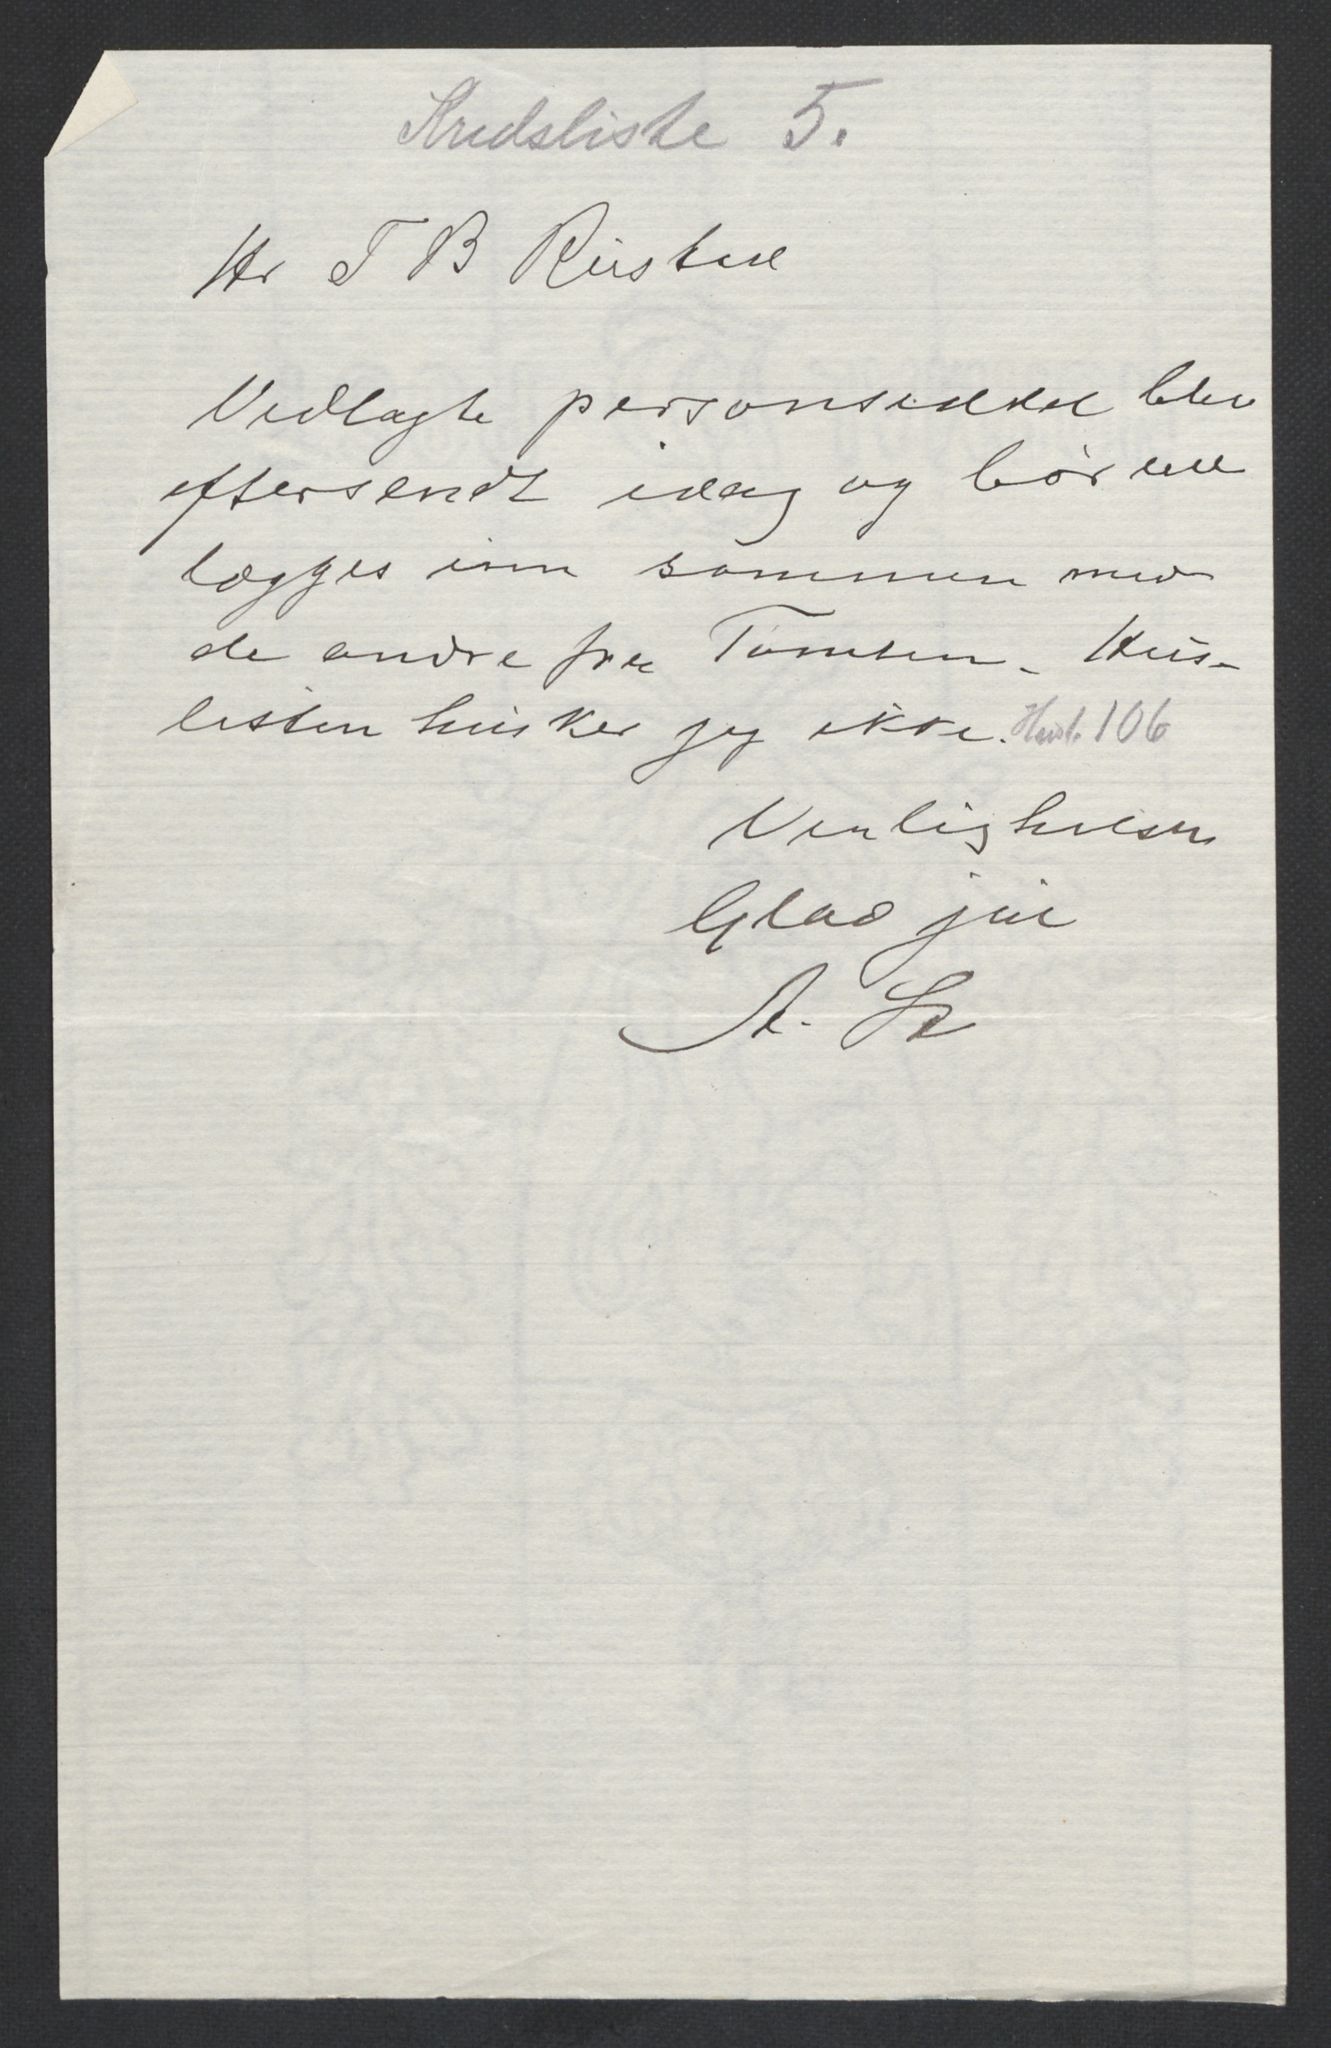 Kredsliste 5.
Hr T B Rustad
Vedlagte personseddel blev
eftersendt idag og bør vel
lægges inn sammen med
de andre fra Tomten. Hus-
listen husker jeg ikke. Husl. 106
Venlig hilsen
Glad jul
A.